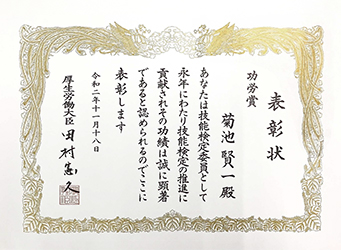 表彰状
功労賞
菊池賢一殿
あなたは技能検定委員として
永年にわたり技能検定の推進に
貢献されその功績は誠に顕著
であると認められるのでここに
表彰します
令和二年十一月十八日
厚生労働大臣 田村憲久